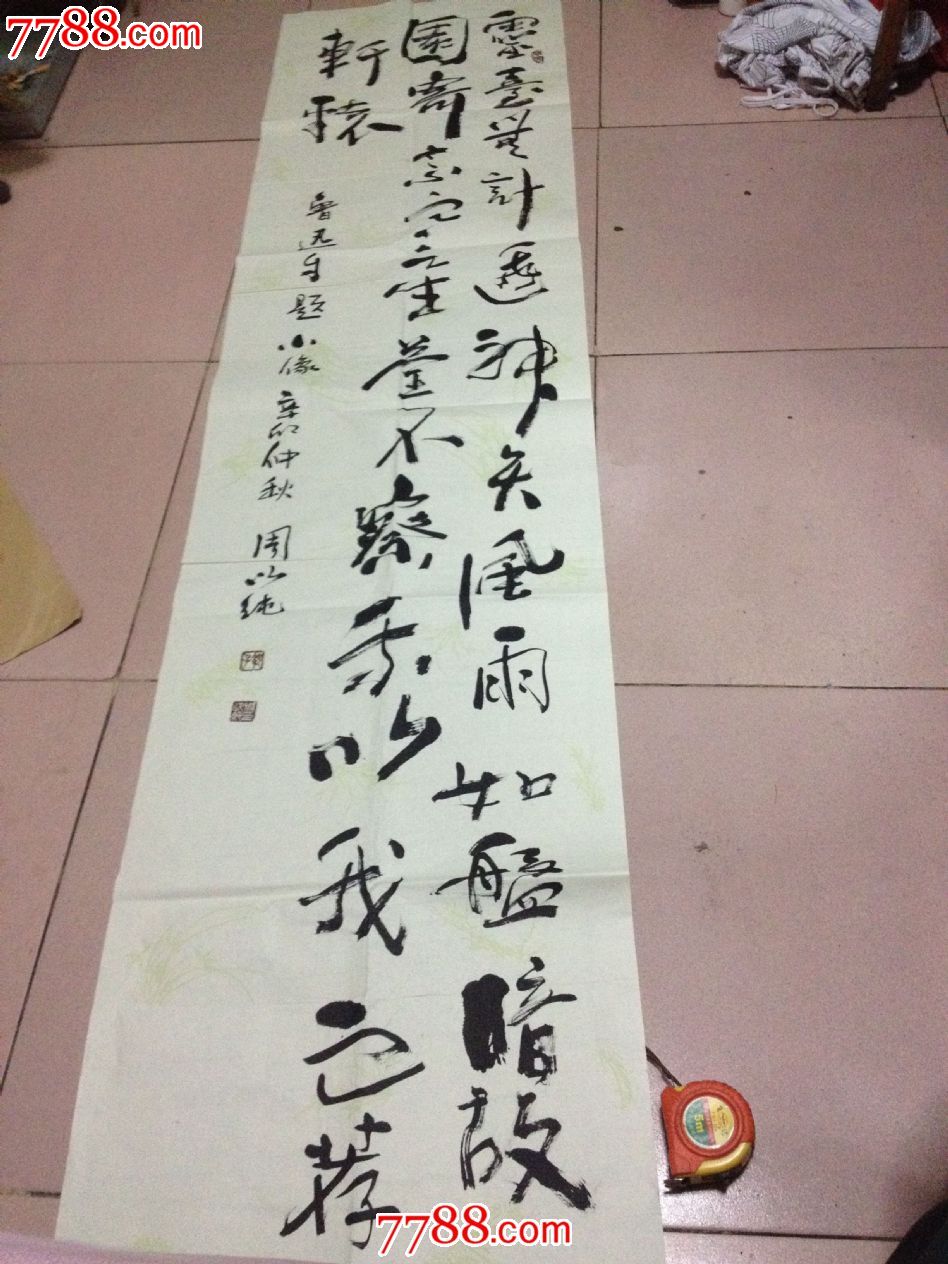 7788.com
7788.com
靈臺無計逃神矢風雨如盤暗故
園寄意寒星荃不察我以我血荐
軒轅
魯迅自题小像 辛卯仲秋 周以純
5m
7788.com